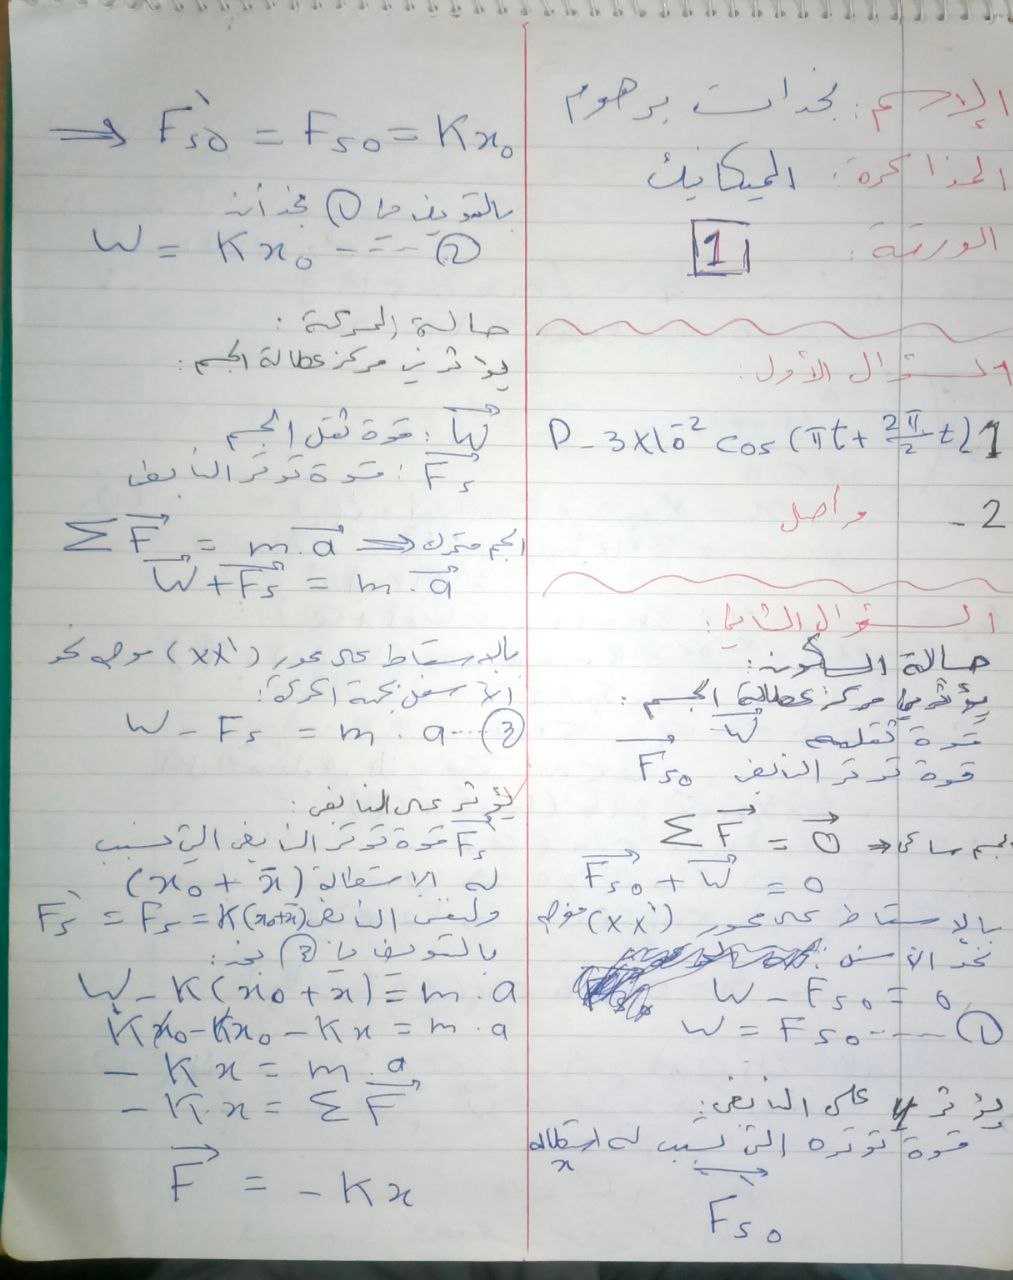 الإسم: نجدات برهوم
المذاكرة: الميكانيك
الورقة: 1
السؤال الأول:
1 D - 3×10⁻² cos (πt + 2π/2 t)
2 - واصل
السؤال الثاني:
حالة السكون:
يؤثر في مركز عطالة الجسم:
قوة ثقله W
قوة توتر النابض Fs0
الجسم ساكن ⇒ ΣF = 0
Fs0 + W = 0
بالإسقاط على محور (xx') موجه
نحو الأسفل:
W - Fs0 = 0
W = Fs0 ---- ①
يؤثر على النابض:
قوة توتره التي تسبب له استطالة
x
Fs0
⇒ F's0 = Fs0 = Kx0
بالتعويض في ① نجد أنه
W = Kx0 ---- ②
حالة الحركة:
يؤثر في مركز عطالة الجسم:
W: قوة ثقل الجسم
Fs: قوة توتر النابض
الجسم متحرك ⇒ ΣF = m.a
W + Fs = m.a
بالإسقاط على محور (xx') موجه نحو
الأسفل بجهة الحركة:
W - Fs = m . a --- ③
يؤثر على النابض:
F's قوة توتر النابض التي تسبب
له الاستطالة (x0 + x̄)
ولنفس النابض F's = Fs = K(x0+x̄)
بالتعويض في ③ نجد:
W - K(x0 + x̄) = m . a
Kx0 - Kx0 - Kx = m . a
- Kx = m . a
- K.x = ΣF
F = - Kx